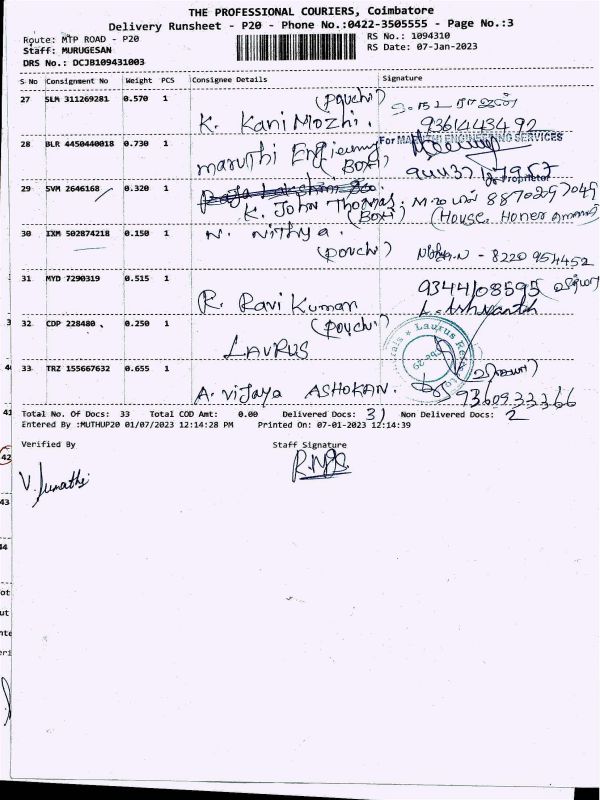 THE PROFESSIONAL COURIERS, Coimbatore
Delivery Runsheet - P20 - Phone No.:0422-3505555 - Page No.:3
Route: MTP ROAD - P20
RS No.: 1094310
Staff: MURUGESAN
RS Date: 07-Jan-2023
DRS No.: DCJB109431003
S No Consignment No Weight PCS Consignee Details Signature
27 SLM 311269281 0.570 1 (pouch)
K. Kani Mozhi.
28 BLR 4450440018 0.730 1
For MARUTHI ENGINEERING SERVICES
maruthi (Box)
Proprietor
29 SVM 2646168 0.320 1
K. John Thomas. (Box) 8870297049
(House
30 IXM 502874218 0.150 1 N. Nithya.
(pouch) - 8220954452
31 MYD 7290319 0.515 1 9344108595
R. Ravi Kumar L. Ashwanth
32 CDP 228480 0.250 1 (pouch)
LAURUS
33 TRZ 155667632 0.655 1
A. Vijaya ASHOKAN. 9360933366
Total No. Of Docs: 33 Total COD Amt: 0.00 Delivered Docs: 31 Non Delivered Docs: 2
Entered By :MUTHUP20 01/07/2023 12:14:28 PM Printed On: 07-01-2023 12:14:39
Verified By Staff Signature